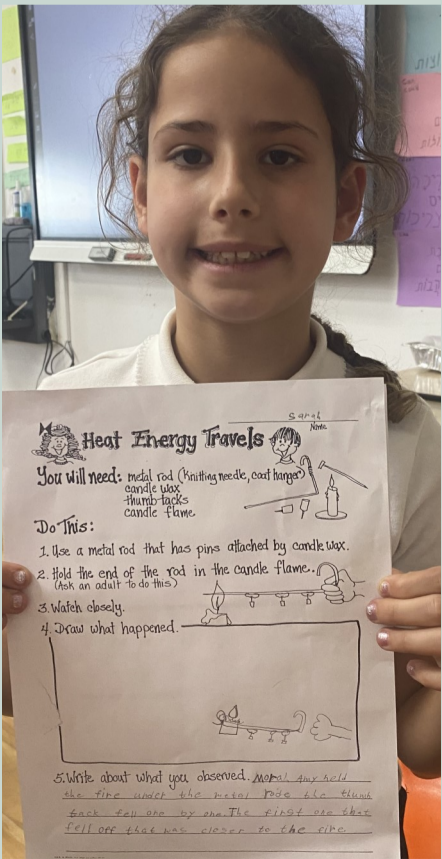 Sarah
Name
Heat Energy Travels
You will need: metal rod (Knitting needle, coat hanger)
candle wax
thumb-tacks
candle flame
Do This:
1. Use a metal rod that has pins attached by candle wax.
2. Hold the end of the rod in the candle flame..
(Ask an adult to do this)
3. Watch closely.
4. Draw what happened.
5. Write about what you observed. Mora. Amy held
the fire under the metal rode the thumb
tack fell one by one. The first one that
fell off that was closer to the fire.